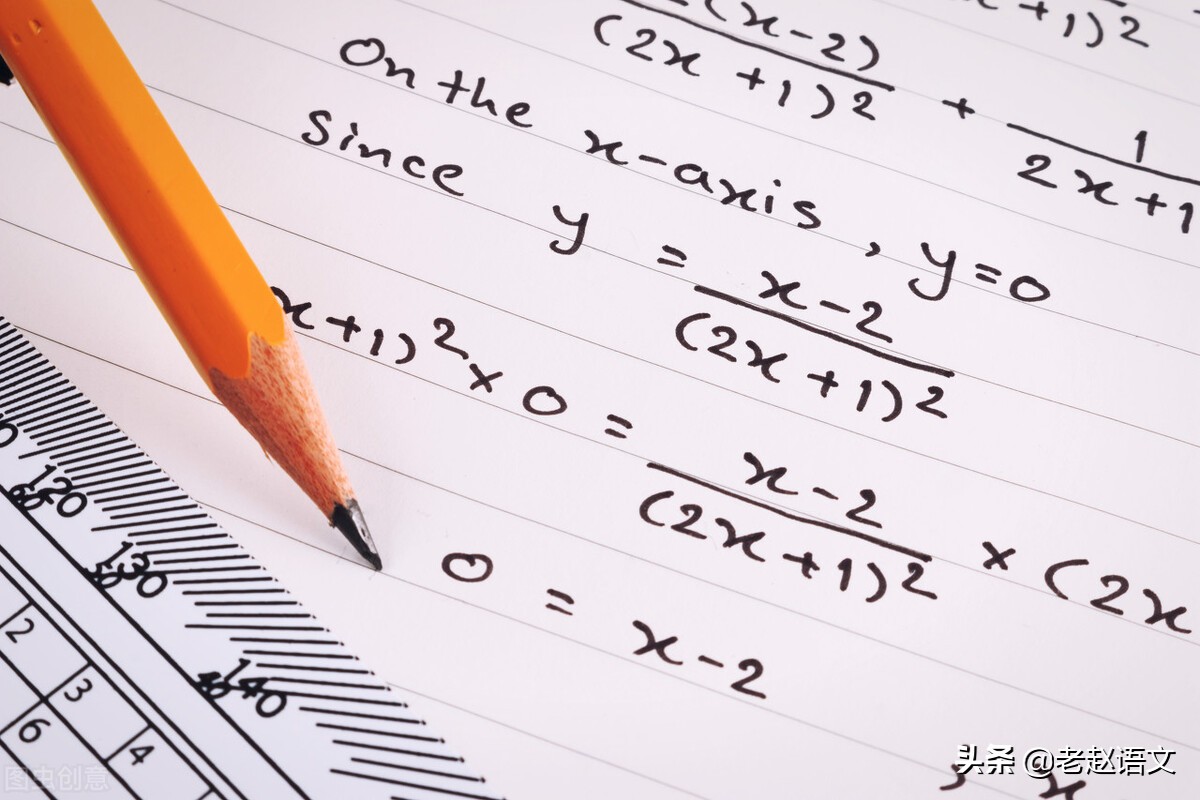 (x-2)
(2x+1)² + 1
2x+1
x+1)²
On the x-axis, y=0
Since y = x-2
(2x+1)²
x+1)² × 0 = x-2
(2x+1)² × (2x
0 = x-2
x
120
60
130
50
140
40
2
3
4
6
图虫创意
头条 @老赵语文